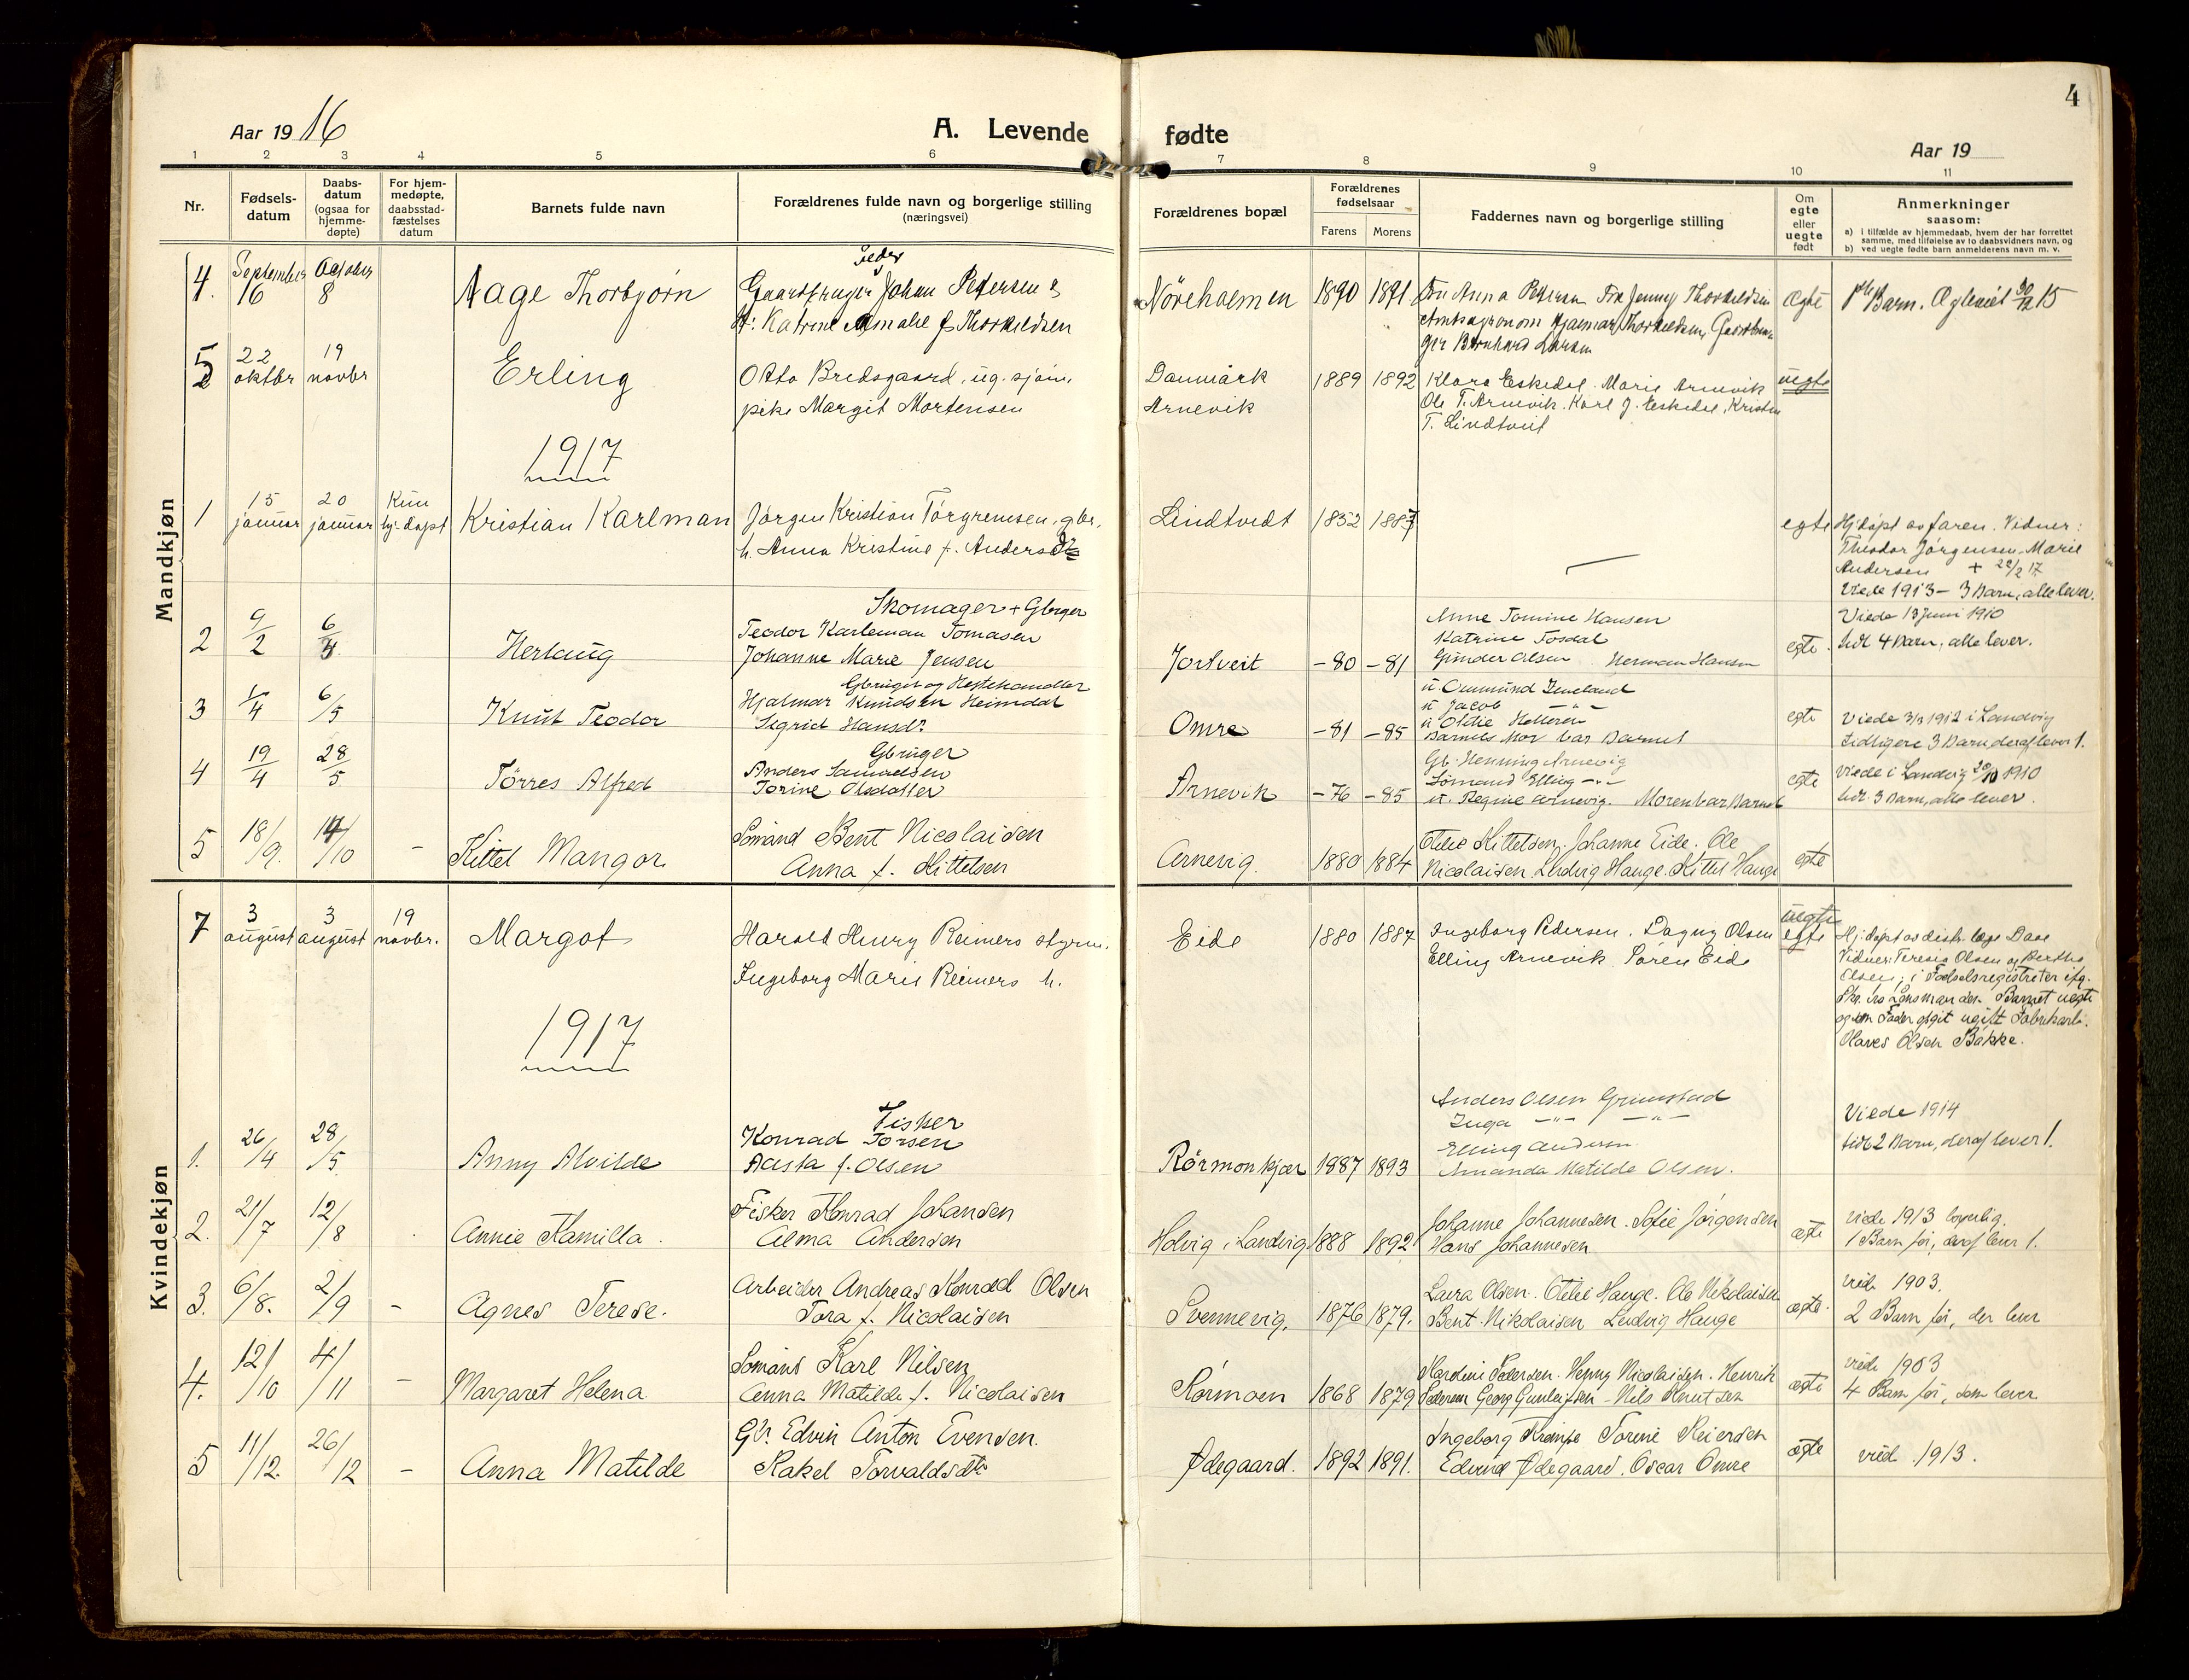 4
Aar 1916
A. Levende
fødte
Aar 19
1 2 3 4 5 6 7 8 9 10 11
Nr.
Fødsels-
datum
Daabs-
datum
(ogsaa for
hjemme-
døpte)
For hjem-
medøpte,
daabsstad-
fæstelses
datum
Barnets fulde navn
Forældrenes fulde navn og borgerlige stilling
(næringsvei)
Forældrenes bopæl
Forældrenes
fødselsaar
Farens Morens
Faddernes navn og borgerlige stilling
Om
egte
eller
uegte
født
Anmerkninger
saasom:
a) i tilfælde av hjemmedaab, hvem der har forrettet
samme, med tilføielse av to daabsvidners navn, og
b) ved uegte fødte barn anmelderens navn m. v.
Mandkjøn
4. September 16 October 8
Aage Thorbjørn
Gaardbruger Johan Petersen &
H: Katrine Amalie f Thorkildsen
Nöreholmen 1890 1891
Fru Anna Petersen Frk Jenny Thorkildsen
Amtsagronom Hjalmar Thorkildsen, Gaardbru-
ger Bernhard Larsen
Ægte
1ste Barn. Ægteviet 30/12 15
5 22 oktbr 19 novbr
Erling
Otto Bredsgaard, ug. sjöm.
pike Margit Mortensen
Danmark
Arnevik
1889 1892
Klara Eskedal. Marie Arnevik
Ole T. Arnevik. Karl J. Eskedal, Kristen
T. Lindtveit
uegte
1917
1 15 januar 20 januar Kun hj. døpt
Kristian Karlman
Jørgen Kristian Tørgremsen, gbr.
h. Anna Kristine f. Andersdtr
Lindtvedt 1852 1883
egte
Hj.døpt av faren. Vidner:
Theodor Jørgensen, Marie
Andersen + 22/2 17.
Viede 1913 - 3 Barn, alle lever.
2 9/2 6/4
Herlaug
Skomager + Gbrger
Teodor Karleman Tomasen
Johanne Marie Jensen
Jortveit -80 -81
Anne Tomine Hansen
Katrine Tosdal
Gunder Olsen Herman Hansen
egte
Viede 13 juni 1910
tidl. 4 Barn, alle lever.
3 1/4 6/5
Knut Teodor
Gbruger og Hestehandler
Hjalmar Knudsen Heimdal
Sigrid Hansdr
Omre -81 -85
u. Ommund Imeland
u Jacob -"-
u Otdie Helleren
Barnets Mor bar Barnet
egte
Viede 3/3 1912 i Landvig
Tidligere 3 Barn, deraf lever 1.
4 19/4 28/5
Tørres Alfred
Gbruger
Anders Samuelsen
Torine Olsdatter
Arnevik -76 -85
Gb. Henning Arnevig
Sømand Elling -"-
u. Regine Arnevig. Moren bar Barnet
egte
Viede i Landvig 20/10 1910
tidl. 3 Barn, alle lever.
5 18/9. 14/10 -
Kittel Mangor
Sømand Bent Nicolaisen
Anna f. Kittelsen
Arnevig 1880 1884
Otelie Kittelsen. Johanne Eide. Ole
Nicolaisen. Ludvig Hauge. Kittel Hauge
egte
Kvindekjøn
7 3 august 3 august 19 novbr.
Margot
Harald Henry Reimers styrm.
Ingeborg Marie Reimers h.
Eide 1880 1887
Ingeborg Pedersen. Dagny Olsen
Elling Arnevik Søren Eide
uegte
egte
Hj.døpt av distr. læge Daae
Vidner: Teresia Olsen og Bertha
Olsen; i Fødselsregistreter ifg.
Skr. fra Lensmanden Barnet uegte
og som Fader opgit ugift Fabrikarb.
Olaves Olsen Bakke.
1917
1. 26/4 28/5
Anny Alvilde
Fisker
Konrad Torsen
Aasta f. Olsen
Rörmonkjær 1887 1893
Anders Olsen Grimstad
Inga -"- -"-
Elling Andersen
Amanda Matilde Olsen.
Viede 1914
tidl. 2 Barn, deraf lever 1.
2. 21/7 12/8
Annie Kamilla.
Fisker Konrad Johansen
Alma Andersen
Holvig i Landvig 1888 1892
Johanne Johannesen. Sofie Jørgensen
Hans Johannesen
ægte
viede 1913 borgerlig.
1 Barn før, deraf lever 1.
3. 6/8. 2/9 -
Agnes Terese.
Arbeider Andreas Konrad Olsen
Tora f. Nicolaisen
Svennevig. 1876 1879.
Laura Olsen. Otelie Hauge. Ole Nikolaisen
Bent Nikolaisen Ludvig Hauge
ægte.
vied. 1903.
2 Barn før, der lever
4. 12/10 4/11 -
Margaret Helena
Sømand Karl Nilsen
Anna Matilde f. Nicolaisen
Sørmoen 1868 1879
Hardine Pedersen. Henny Nicolaisen. Henrik
Pedersen Georg Gunleifsen - Nils Knutsen
ægte
viede 1903
4 Barn før, som lever
5 11/12. 26/12 -
Anna Matilde
Gbr. Edvin Anton Evensen.
Rakel Torvaldsdtr
Ødegaard. 1892 1891.
Ingeborg Krempe Torine Reiersen
Edvind Ødegaard. Oscar Omre
ægte
vied. 1913.